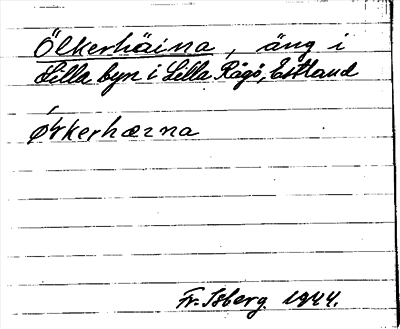 Ölkerhäina, äng i
Lilla byn i Lilla Rågö, Estland
ørkerhæzna
Fr. Isberg 1944.